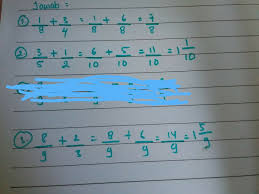 Jawab =
① 1/8 + 3/4 = 1/8 + 6/8 = 7/8
② 3/5 + 1/2 = 6/10 + 5/10 = 11/10 = 1 1/10
③ 8/9 + 2/3 = 8/9 + 6/9 = 14/9 = 1 5/9